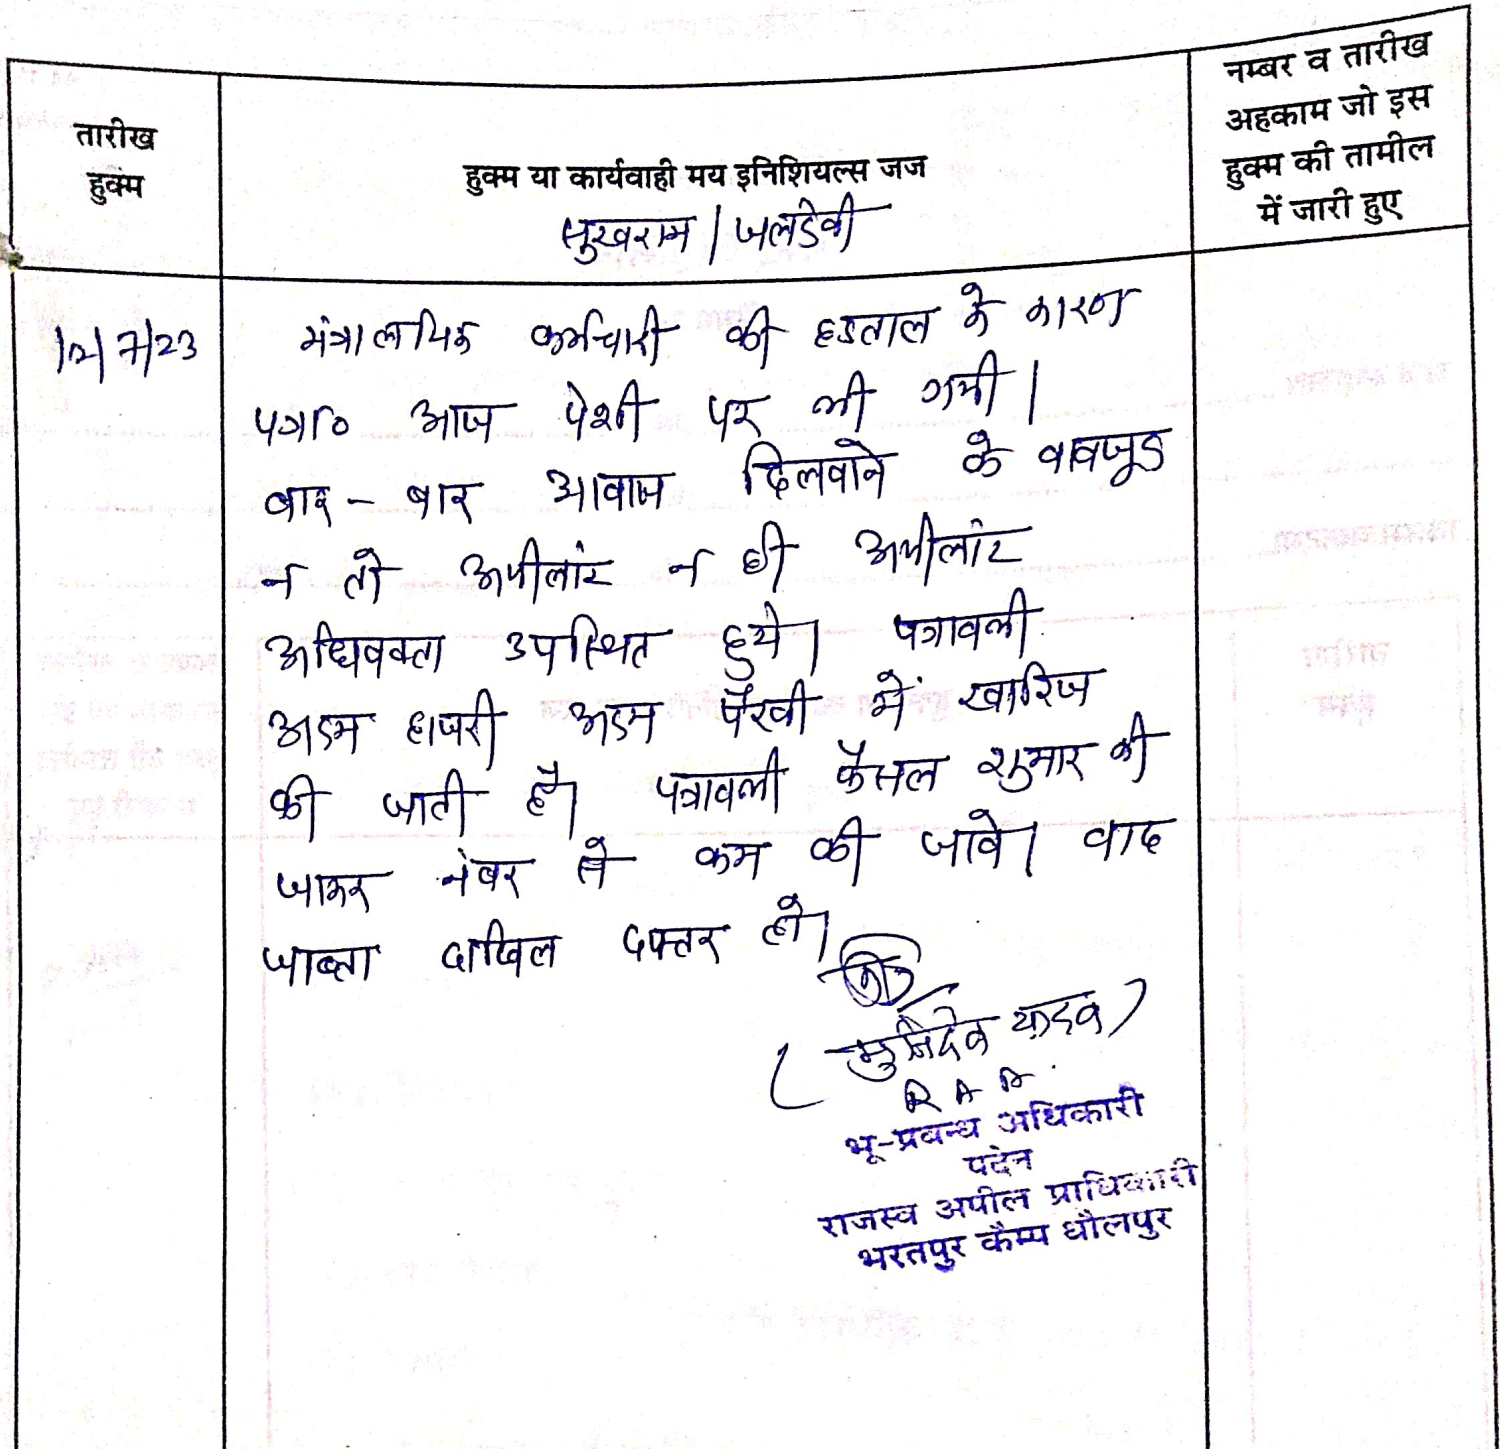 तारीख
हुक्म
हुक्म या कार्यवाही मय इनिशियल्स जज
नम्बर व तारीख
अहकाम जो इस
हुक्म की तामील
में जारी हुए
सुखराम / जलदेवी
12/7/23
मंत्रालयिक कर्मचारी की हडताल के कारण
पत्रा० आज पेशी पर ली गयी।
बार-बार आवाज दिलवाने के वावजूद
न तो अपीलांट न ही अपीलांट
अधिवक्ता उपस्थित हुये। पत्रावली
अदम हाजरी अदम पैरवी में खारिज
की जाती है। पत्रावली फैसल शुमार की
जाकर नंबर से कम की जावे। वाद
जाब्ता दाखिल दफ्तर हो।
(मुनिदेव यादव)
R A A
भू-प्रबन्ध अधिकारी
पदेन
राजस्व अपील प्राधिकारी
भरतपुर कैम्प धौलपुर